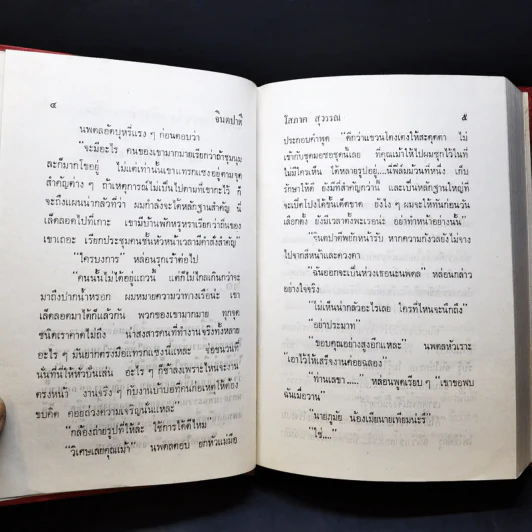 ๔ จินตปาตี
นพดลอัดบุหรี่แรง ๆ ก่อนตอบว่า
"จะมีอะไร คนของเขามากมายเรียกว่าถ้าชุมนุม
ละก็มากโขอยู่ ไม่แต่เท่านั้นเขาแทรกแซงอยู่ตามจุด
สำคัญต่าง ๆ ถ้าเหตุการณ์ไม่เป็นไปตามที่เขากะไว้ ก็
จะถึงแผนน่ากลัวที่ว่า ผมกำลังจะได้หลักฐานสำคัญ นี่
เล็ดลอดไปที่เกาะ เขามีบ้านพักหรูหราเรียกว่าถิ่นของ
เขาเถอะ เรียกประชุมคนชั้นหัวหน้าเวลามีคำสั่งสำคัญ"
"ใครบงการ" หล่อนรุกเร้าต่อไป
"คนนั้นไม่ได้อยู่แถวนี้ แต่ก็ไม่ไกลเกินกว่าจะ
มาถึงปากน้ำหรอก ผมหมายความว่าทางเรือน่ะ เขา
เล็ดลอดมาได้ก็แล้วกัน พวกของเขามากมาย ทุกจุด
ชนิดเราคาดไม่ถึง น่าสงสารคนที่ทำงานจริงทั้งหลาย
อะไร ๆ มันยากตรงมือแทรกแซงนี่แหละ จ่อชนวนที่
นั้นที่นี่ให้หัวปั่นเล่น อะไร ๆ ก็ช้าลงเพราะไหนจะงาน
ตรงหน้า งานจริง ๆ กับงานบ้าบอที่คนก่อเหตุให้ต้อง
ขบคิด ค่อยถ่วงความเจริญนั่นแหละ"
"กล้องถ่ายรูปที่ให้ล่ะ ใช้การได้ดีไหม
"วิเศษเลยคุณเม้า" นพดลตอบ ยกหัวแม่มือ
โสภาค สุวรรณ ๕
ประกอบคำพูด "ดีกว่าแขวนโตงเตงให้สะดุดตา ไม่
เข้ากับชุดมอซอชุดนี้เลย ที่คุณเม้าให้ไปผมซุกไว้ในที่
ไม่มีใครเห็น ได้หลายรูปอยู่...นี่ฟิล์มม้วนที่หนึ่ง เก็บ
รักษาให้ดี ยังมีที่สำคัญกว่านี้ และเป็นหลักฐานใหญ่ที่
จะเปิดโปงได้ขั้นเด็ดขาด ยังไง ๆ ผมจะให้ทันก่อนวัน
เลือกตั้ง ยังมีเวลาตั้งพะเรอน่ะ อย่าทำหน้าอย่างนั้น"
จินตปาตีพยักหน้ารับ หากความกังวลยังไม่จาง
ไปจากสีหน้าและดวงตา
"ฉันออกจะเป็นห่วงเธอนะนพดล" หล่อนกล่าว
อย่างจริงจัง
"ไม่เห็นน่ากลัวอะไรเลย ใครที่ไหนจะนึกถึง"
"อย่าประมาท"
"ขอบคุณอย่างสูงอีกแหละ" นพดลหัวเราะ
"เอาไว้ให้เสร็จงานค่อยฉลอง"
"ท่านเลขา..... หล่อนพูดเรียบ ๆ "เขาขอพบ
ฉันเมื่อวาน"
"ใช่...."